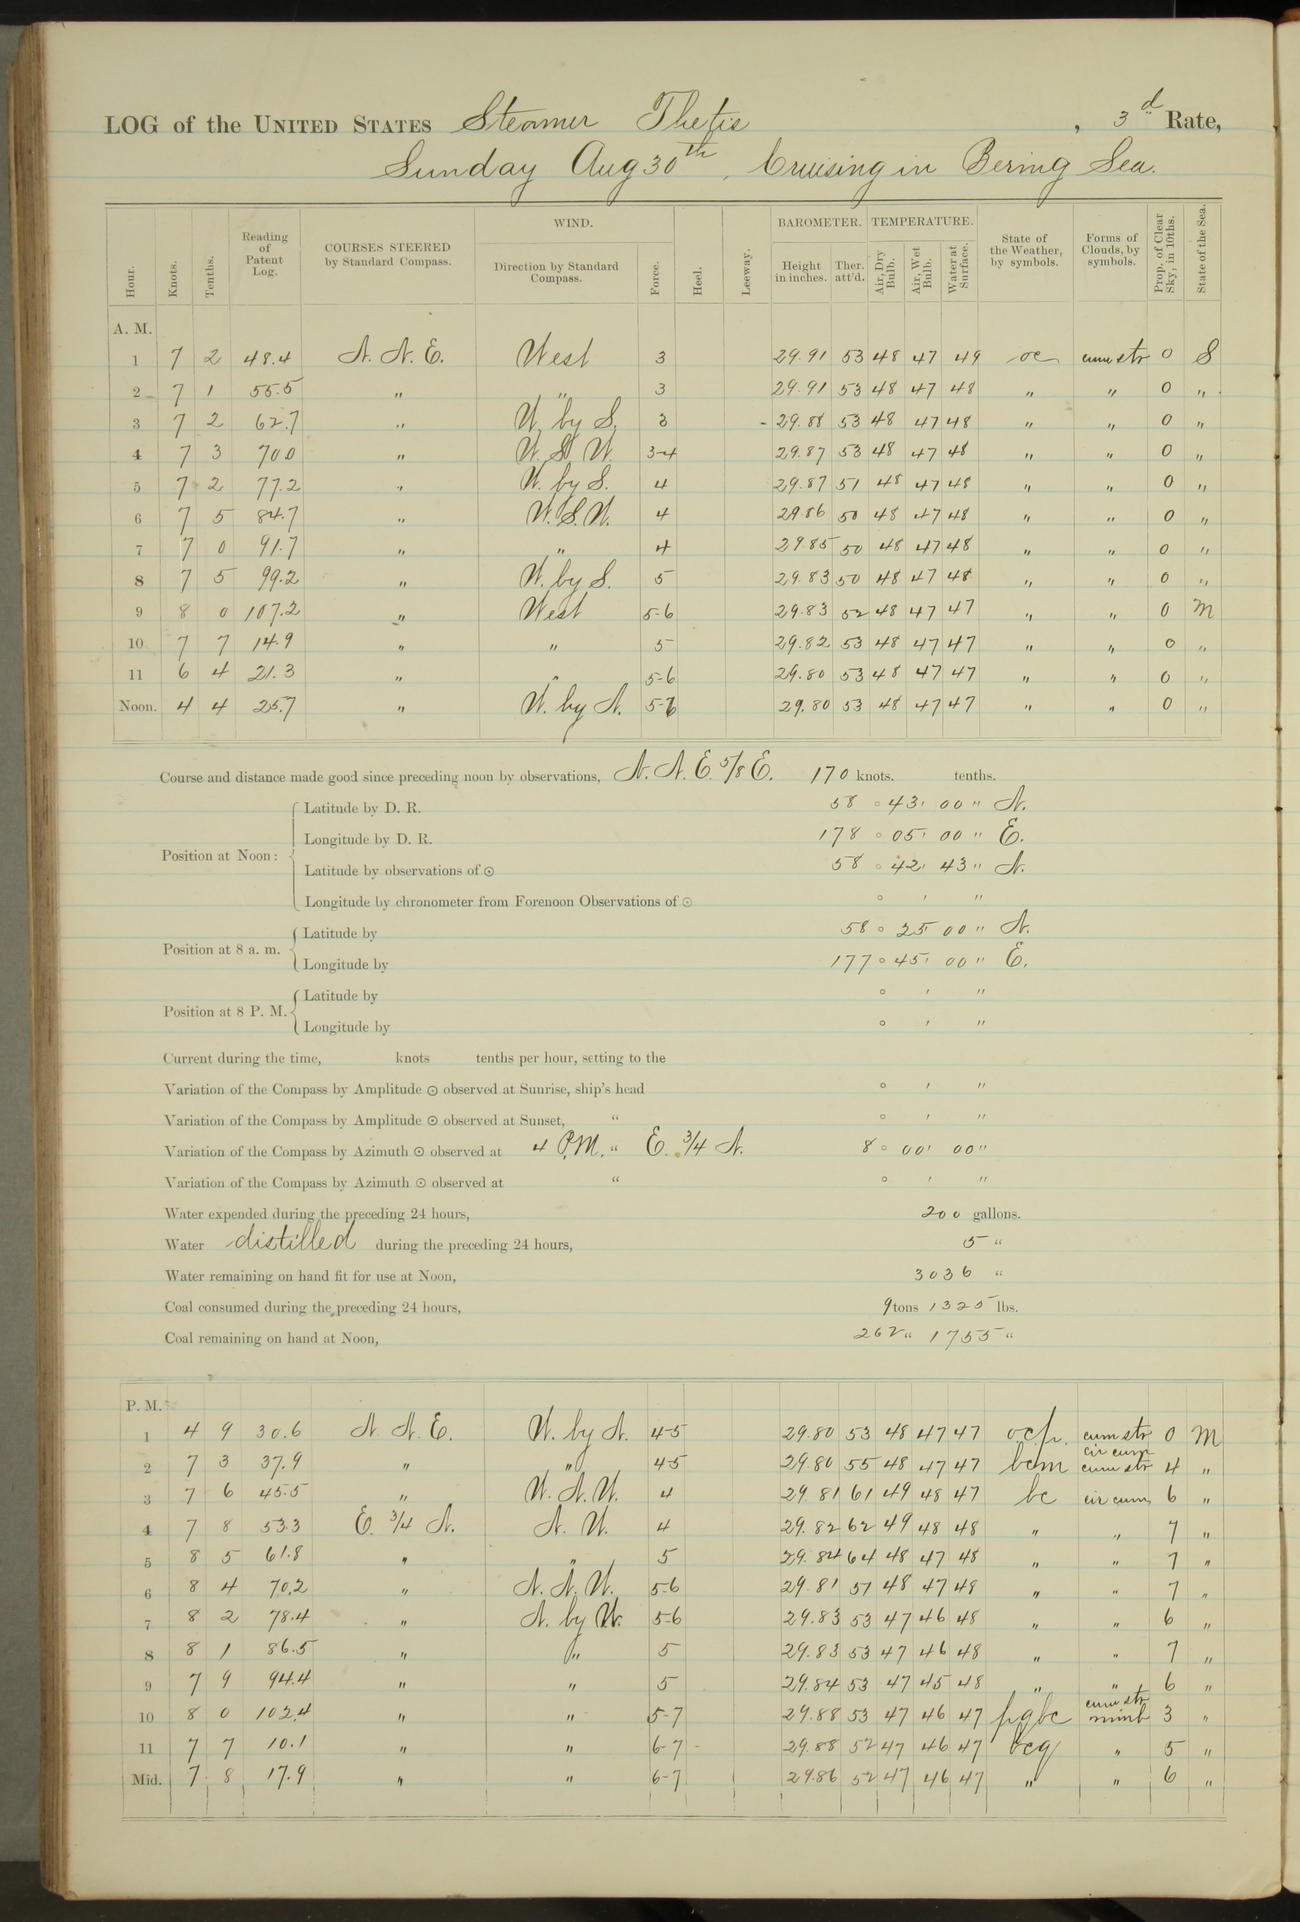 LOG of the UNITED STATES Steamer Thetis , 3d Rate,
Sunday Aug 30th, Cruising in Bering Sea.
Hour. Knots. Tenths. Reading of Patent Log. COURSES STEERED by Standard Compass. WIND. Direction by Standard Compass. Force. Heel. Leeway. BAROMETER. Height in inches. Ther. att'd. TEMPERATURE. Air, Dry Bulb. Air, Wet Bulb. Water at Surface. State of the Weather, by symbols. Forms of Clouds, by symbols. Prop. of Clear Sky, in 10ths. State of the Sea.
A. M.
1 7 2 48.4 N. N. E. West 3 29.91 53 48 47 49 oc cum str 0 S
2 7 1 55.5 " " 3 29.91 53 48 47 48 " " 0 "
3 7 2 62.7 " W. by S. 3 29.88 53 48 47 48 " " 0 "
4 7 3 70 0 " W. S. W. 3-4 29.87 53 48 47 48 " " 0 "
5 7 2 77.2 " W. by S. 4 29.87 51 48 47 48 " " 0 "
6 7 5 84.7 " W. S. W. 4 29.86 50 48 47 48 " " 0 "
7 7 0 91.7 " " 4 29.85 50 48 47 48 " " 0 "
8 7 5 99.2 " W. by S. 5 29.83 50 48 47 48 " " 0 "
9 8 0 107.2 " West 5-6 29.83 52 48 47 47 " " 0 M
10 7 7 14.9 " " 5 29.82 53 48 47 47 " " 0 "
11 6 4 21.3 " " 5-6 29.80 53 48 47 47 " " 0 "
Noon. 4 4 25.7 " W. by N. 5-6 29.80 53 48 47 47 " " 0 "
Course and distance made good since preceding noon by observations, N. N. E. 5/8 E. 170 knots. tenths.
Position at Noon: Latitude by D. R. 58 ° 43 ' 00 " N.
Longitude by D. R. 178 ° 05 ' 00 " E.
Latitude by observations of ☉ 58 ° 42 ' 43 " N.
Longitude by chronometer from Forenoon Observations of ☉ ° ' "
Position at 8 a. m. Latitude by 58 ° 25 ' 00 " N.
Longitude by 177 ° 45 ' 00 " E.
Position at 8 P. M. Latitude by ° ' "
Longitude by ° ' "
Current during the time, knots tenths per hour, setting to the
Variation of the Compass by Amplitude ☉ observed at Sunrise, ship's head ° ' "
Variation of the Compass by Amplitude ☉ observed at Sunset, " ° ' "
Variation of the Compass by Azimuth ☉ observed at 4 P.M. " E. 3/4 N. 8 ° 00 ' 00 "
Variation of the Compass by Azimuth ☉ observed at " ° ' "
Water expended during the preceding 24 hours, 200 gallons.
Water distilled during the preceding 24 hours, 5 "
Water remaining on hand fit for use at Noon, 3036 "
Coal consumed during the preceding 24 hours, 9 tons 1325 lbs.
Coal remaining on hand at Noon, 262 " 1755 "
P. M.
1 4 9 30.6 N. N. E. W. by N. 4-5 29.80 53 48 47 47 ocp. cum str 0 M
2 7 3 37.9 " " 4-5 29.80 55 48 47 47 bcm cir cum cum str 4 "
3 7 6 45.5 " W. N. W. 4 29.81 61 49 48 47 bc cir cum 6 "
4 7 8 53.3 E. 3/4 N. N. W. 4 29.82 62 49 48 48 " " 7 "
5 8 5 61.8 " " 5 29.84 64 48 47 48 " " 7 "
6 8 4 70.2 " N. N. W. 5-6 29.81 57 48 47 48 " " 7 "
7 8 2 78.4 " N. by W. 5-6 29.83 53 47 46 48 " " 6 "
8 8 1 86.5 " " 5 29.83 53 47 46 48 " " 7 "
9 7 9 94.4 " " 5 29.84 53 47 45 48 " " 6 "
10 8 0 102.4 " " 5-7 29.88 53 47 46 47 pqbc cum str nimb 3 "
11 7 7 10.1 " " 6-7 29.88 52 47 46 47 bcq " 5 "
Mid. 7 8 17.9 " " 6-7 29.86 52 47 46 47 " " 6 "